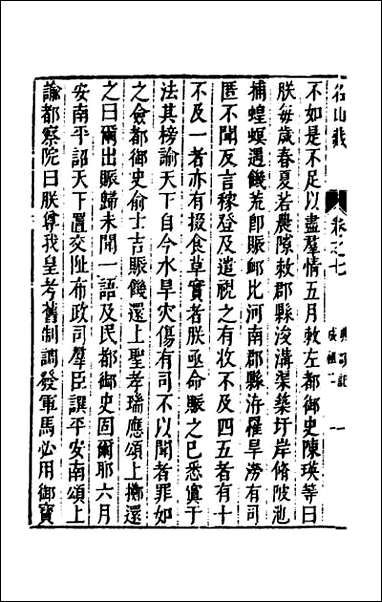 名山藏 卷之七 典謨記 成祖二 一
不如是不足以盡羣情五月敕左都御史陳瑛等曰
朕每歲春夏若農隙敕郡縣浚溝渠築圩岸脩陂池
捕蝗螟遇饑荒卽賑邮比河南郡縣洊罹旱澇有司
匿不聞反言稼登及遣視之有收不及四五者有十
不及一者亦有掇食草實者朕亟命賑之已悉寘于
法其榜諭天下自今水旱灾傷有司不以聞者罪如
之僉都御史俞士吉賑饑還上聖孝瑞應頌上擲還
之曰爾出賑歸未聞一語及民都御史固爾耶六月
安南平詔天下置交阯布政司羣臣譔平安南頌上
諭都察院曰朕尊我皇考舊制調發軍馬必用御寳